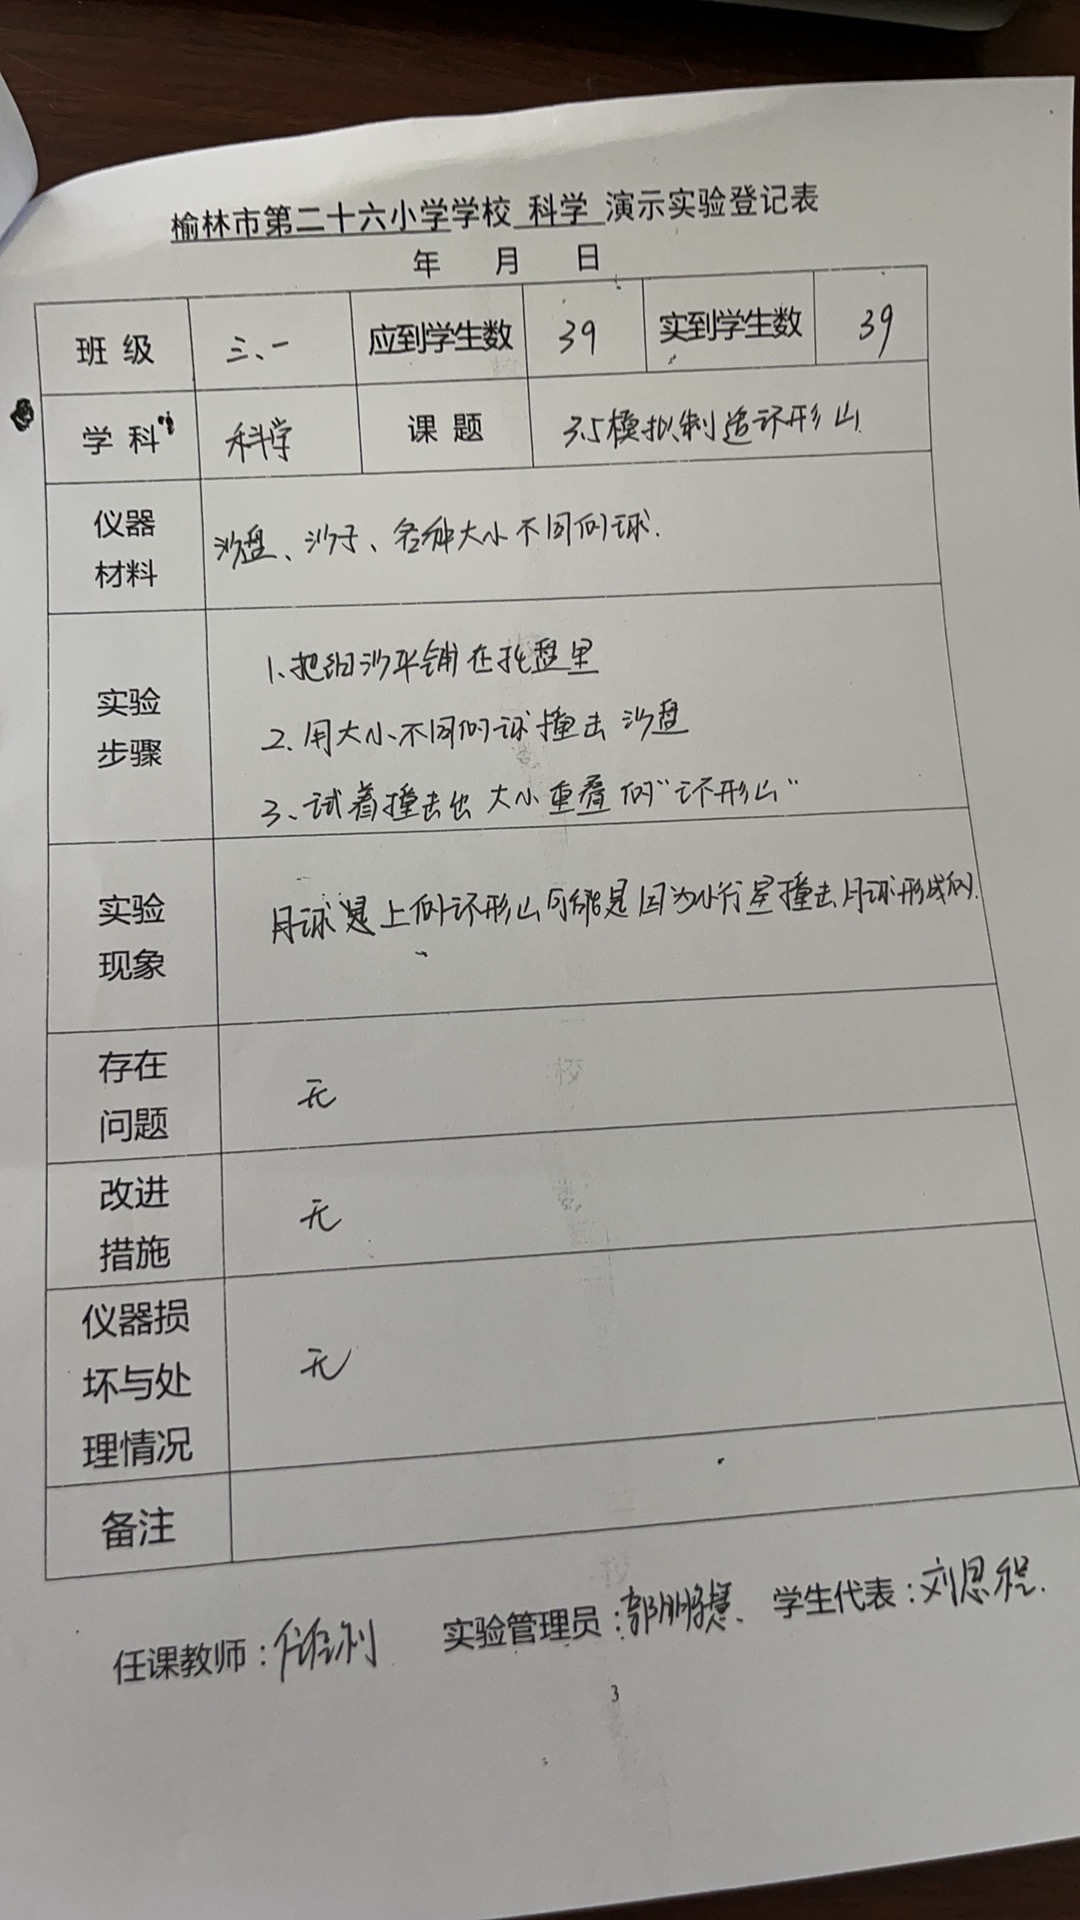 榆林市第二十六小学学校 科学 演示实验登记表
年 月 日
班 级 三、一 应到学生数 39 实到学生数 39
学 科 科学 课 题 3.5模拟制造环形山
仪器
材料
沙盘、沙子、各种大小不同的球.
实验
步骤
1、把细沙平铺在托盘里
2、用大小不同的球撞击沙盘
3、试着撞击出大小重叠的“环形山”
实验
现象
月球上的环形山可能是因为小行星撞击月球形成的.
存在
问题
无
改进
措施
无
仪器损
坏与处
理情况
无
备注
任课教师: 实验管理员: 学生代表:刘思
3